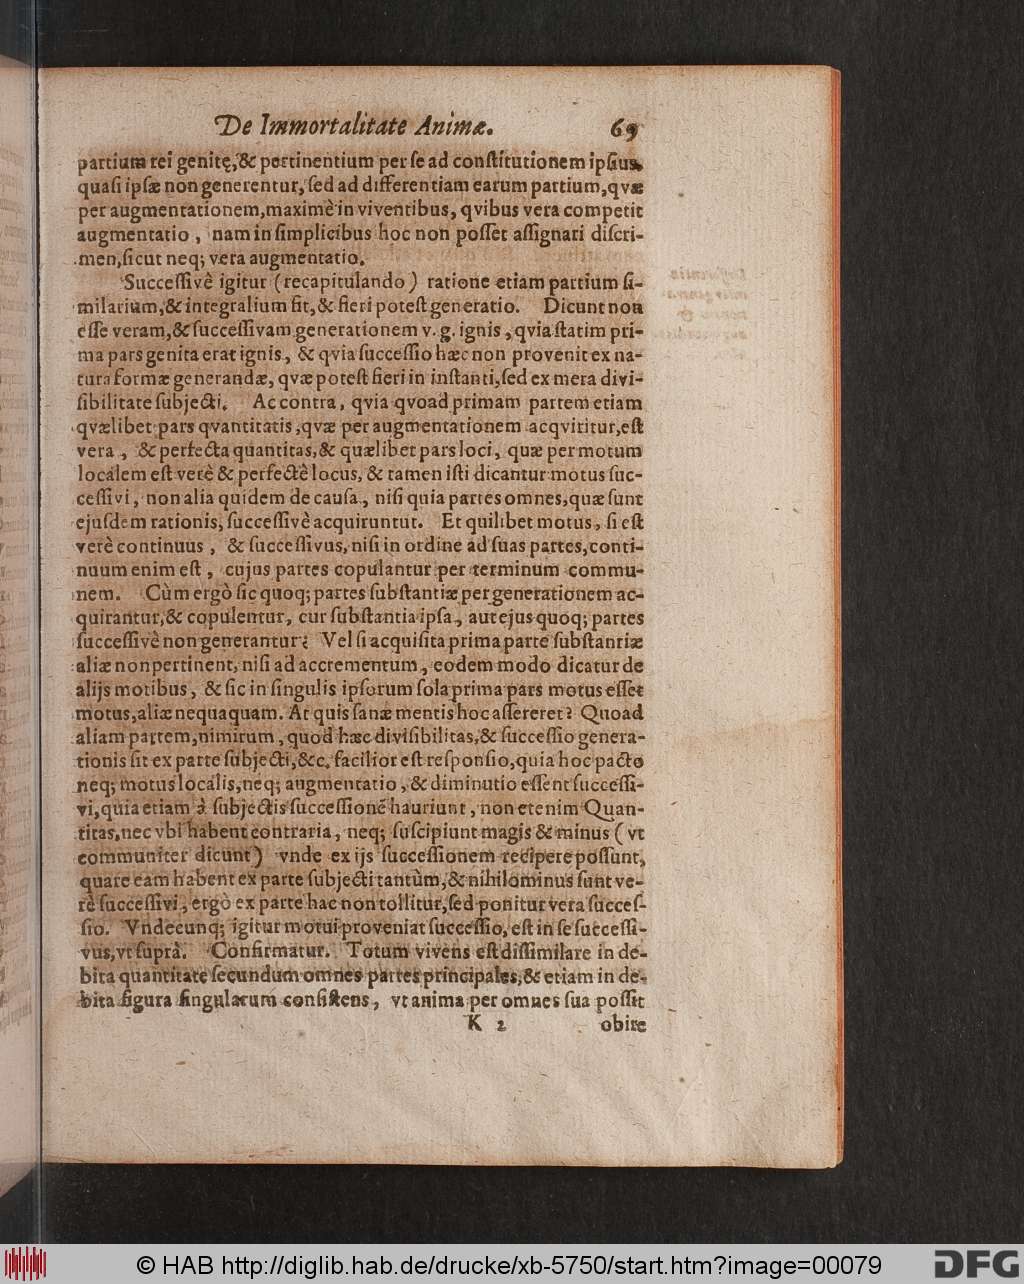 De Immortalitate Animæ. 69
partium rei genitę, & pertinentium per se ad constitutionem ipsius,
quasi ipsæ non generentur, sed ad differentiam earum partium, qvæ
per augmentationem, maximè in viventibus, qvibus vera competit
augmentatio, nam in simplicibus hoc non posset assignari discri-
men, sicut neq; vera augmentatio.
Successivè igitur (recapitulando) ratione etiam partium si-
milarium, & integralium fit, & fieri potest generatio. Dicunt non
esse veram, & successivam generationem v. g. ignis, qvia statim pri-
ma pars genita erat ignis, & qvia successio hæc non provenit ex na-
tura formæ generandæ, qvæ potest fieri in instanti, sed ex mera divi-
sibilitate subjecti. Ac contra, qvia qvoad primam partem etiam
qvælibet pars qvantitatis, qvæ per augmentationem acqviritur, est
vera, & perfecta quantitas, & quælibet pars loci, quæ per motum
localem est verè & perfectè locus, & tamen isti dicantur motus suc-
cessivi, non alia quidem de causa, nisi quia partes omnes, quæ sunt
ejusdem rationis, successivè acquiruntur. Et quilibet motus, si est
verè continuus, & successivus, nisi in ordine ad suas partes, conti-
nuum enim est, cujus partes copulantur per terminum commu-
nem. Cùm ergò sic quoq; partes substantiæ per generationem ac-
quirantur, & copulentur, cur substantia ipsa, aut ejus quoq; partes
successivè non generantur? Vel si acquisita prima parte substantiæ
aliæ non pertinent, nisi ad accrementum, eodem modo dicatur de
alijs motibus, & sic in singulis ipsorum sola prima pars motus esset
motus, aliæ nequaquam. At quis sanæ mentis hoc assereret? Quoad
aliam partem, nimirum, quod hæc divisibilitas, & successio genera-
tionis sit ex parte subjecti, &c. facilior est responsio, quia hoc pacto
neq; motus localis, neq; augmentatio, & diminutio essent successi-
vi, quia etiam à subjectis successionē hauriunt, non etenim Quan-
titas, nec vbi habent contraria, neq; suscipiunt magis & minus (vt
communiter dicunt) vnde ex ijs successionem recipere possunt,
quare eam habent ex parte subjecti tantùm, & nihilominus sunt ve-
rè successivi, ergò ex parte hac non tollitur, sed ponitur vera succes-
sio. Vndecunq; igitur motui proveniat successio, est in se successi-
vus, vt suprà. Confirmatur. Totum vivens est dissimilare in de-
bita quantitate secundum omnes partes principales, & etiam in de-
bita figura singularum consistens, vt anima per omnes sua possit
K 2 obire
© HAB http://diglib.hab.de/drucke/xb-5750/start.htm?image=00079 DFG